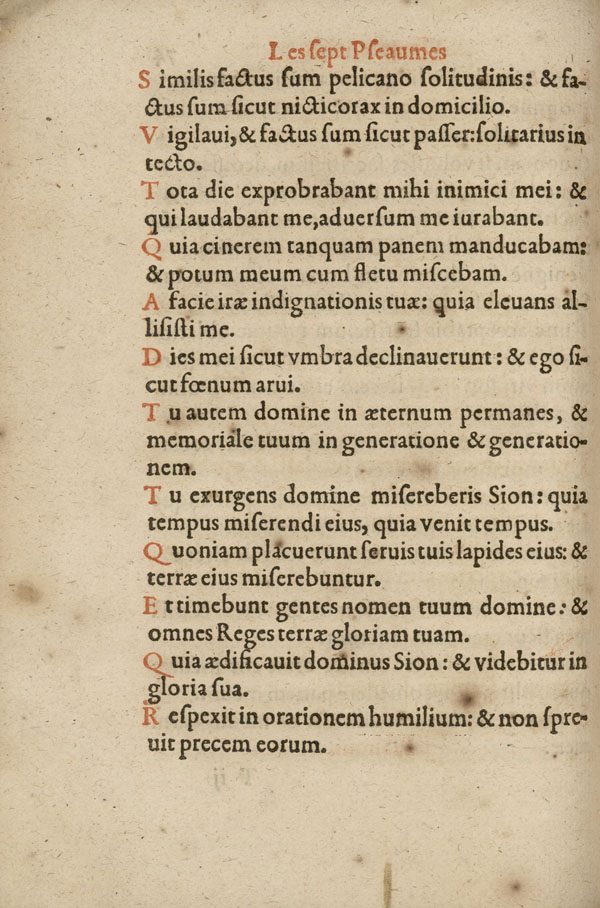 Les sept Pseaumes
Similis factus sum pelicano solitudinis: & fa-
ctus sum sicut nicticorax in domicilio.
Vigilaui, & factus sum sicut passer: solitarius in
tecto.
Tota die exprobrabant mihi inimici mei: &
qui laudabant me, aduersum me iurabant.
Quia cinerem tanquam panem manducabam:
& potum meum cum fletu miscebam.
A facie iræ indignationis tuæ: quia eleuans al-
lisisti me.
Dies mei sicut vmbra declinauerunt: & ego si-
cut fœnum arui.
Tu autem domine in æternum permanes, &
memoriale tuum in generatione & generatio-
nem.
Tu exurgens domine misereberis Sion: quia
tempus miserendi eius, quia venit tempus.
Quoniam placuerunt seruis tuis lapides eius: &
terræ eius miserebuntur.
Et timebunt gentes nomen tuum domine: &
omnes Reges terræ gloriam tuam.
Quia ædificauit dominus Sion: & videbitur in
gloria sua.
Respexit in orationem humilium: & non spre-
uit precem eorum.